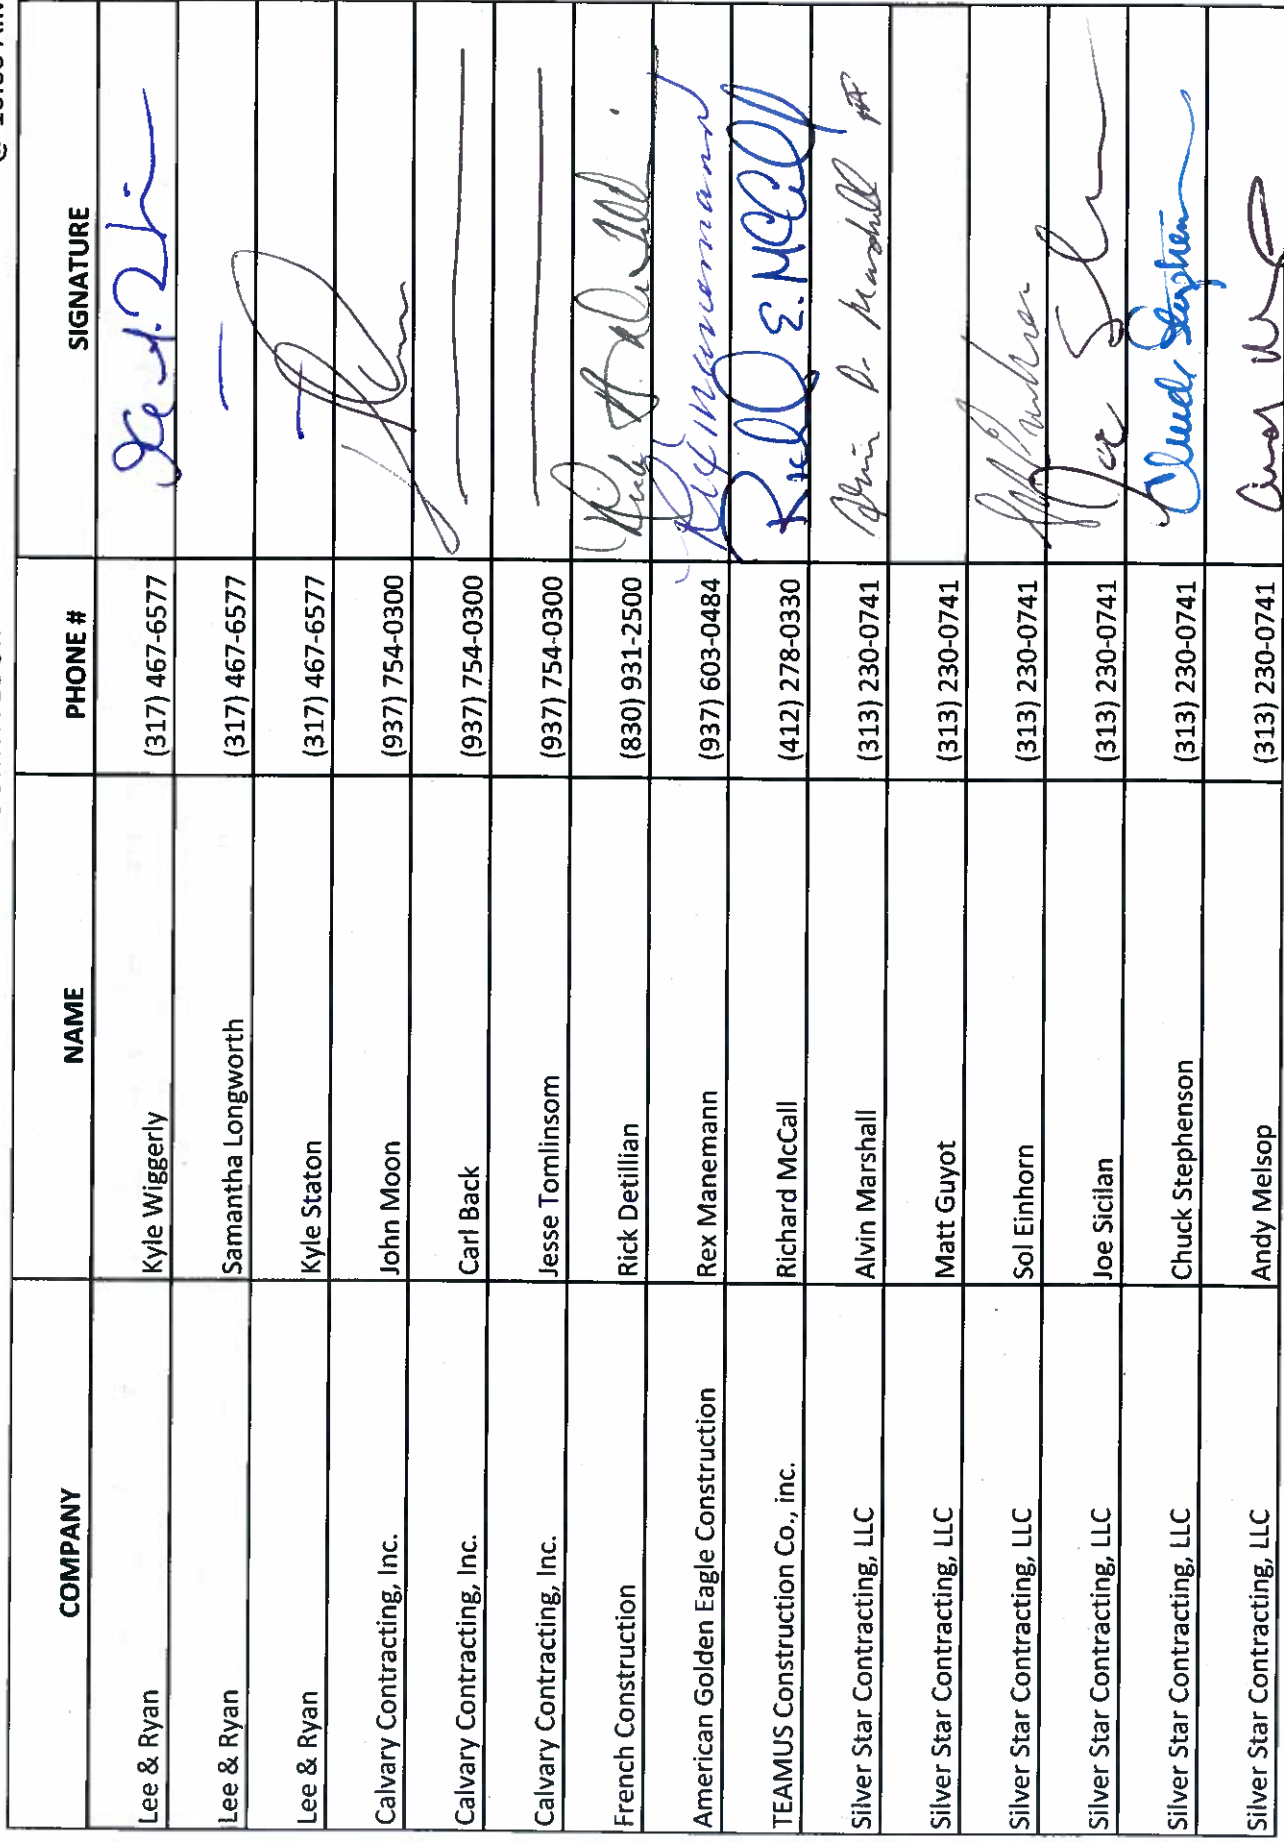 COMPANY NAME PHONE # SIGNATURE
Lee & Ryan Kyle Wiggerly (317) 467-6577
Lee & Ryan Samantha Longworth (317) 467-6577
Lee & Ryan Kyle Staton (317) 467-6577
Calvary Contracting, Inc. John Moon (937) 754-0300
Calvary Contracting, Inc. Carl Back (937) 754-0300
Calvary Contracting, Inc. Jesse Tomlinsom (937) 754-0300
French Construction Rick Detillian (830) 931-2500
American Golden Eagle Construction Rex Manemann (937) 603-0484 Rex Manemann
TEAMUS Construction Co., inc. Richard McCall (412) 278-0330 Richard E. McCall
Silver Star Contracting, LLC Alvin Marshall (313) 230-0741 Alvin D. Marshall
Silver Star Contracting, LLC Matt Guyot (313) 230-0741
Silver Star Contracting, LLC Sol Einhorn (313) 230-0741
Silver Star Contracting, LLC Joe Sicilan (313) 230-0741 Joe
Silver Star Contracting, LLC Chuck Stephenson (313) 230-0741 Chuck Stephenson
Silver Star Contracting, LLC Andy Melsop (313) 230-0741